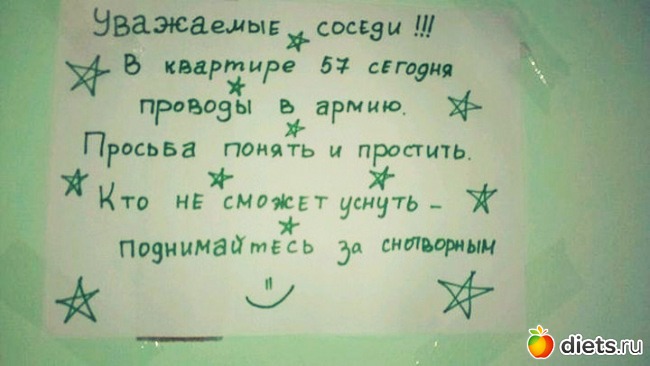 Уважаемые соседи !!!
В квартире 57 сегодня
проводы в армию.
Просьба понять и простить.
Кто не сможет уснуть –
поднимайтесь за снотворным
diets.ru